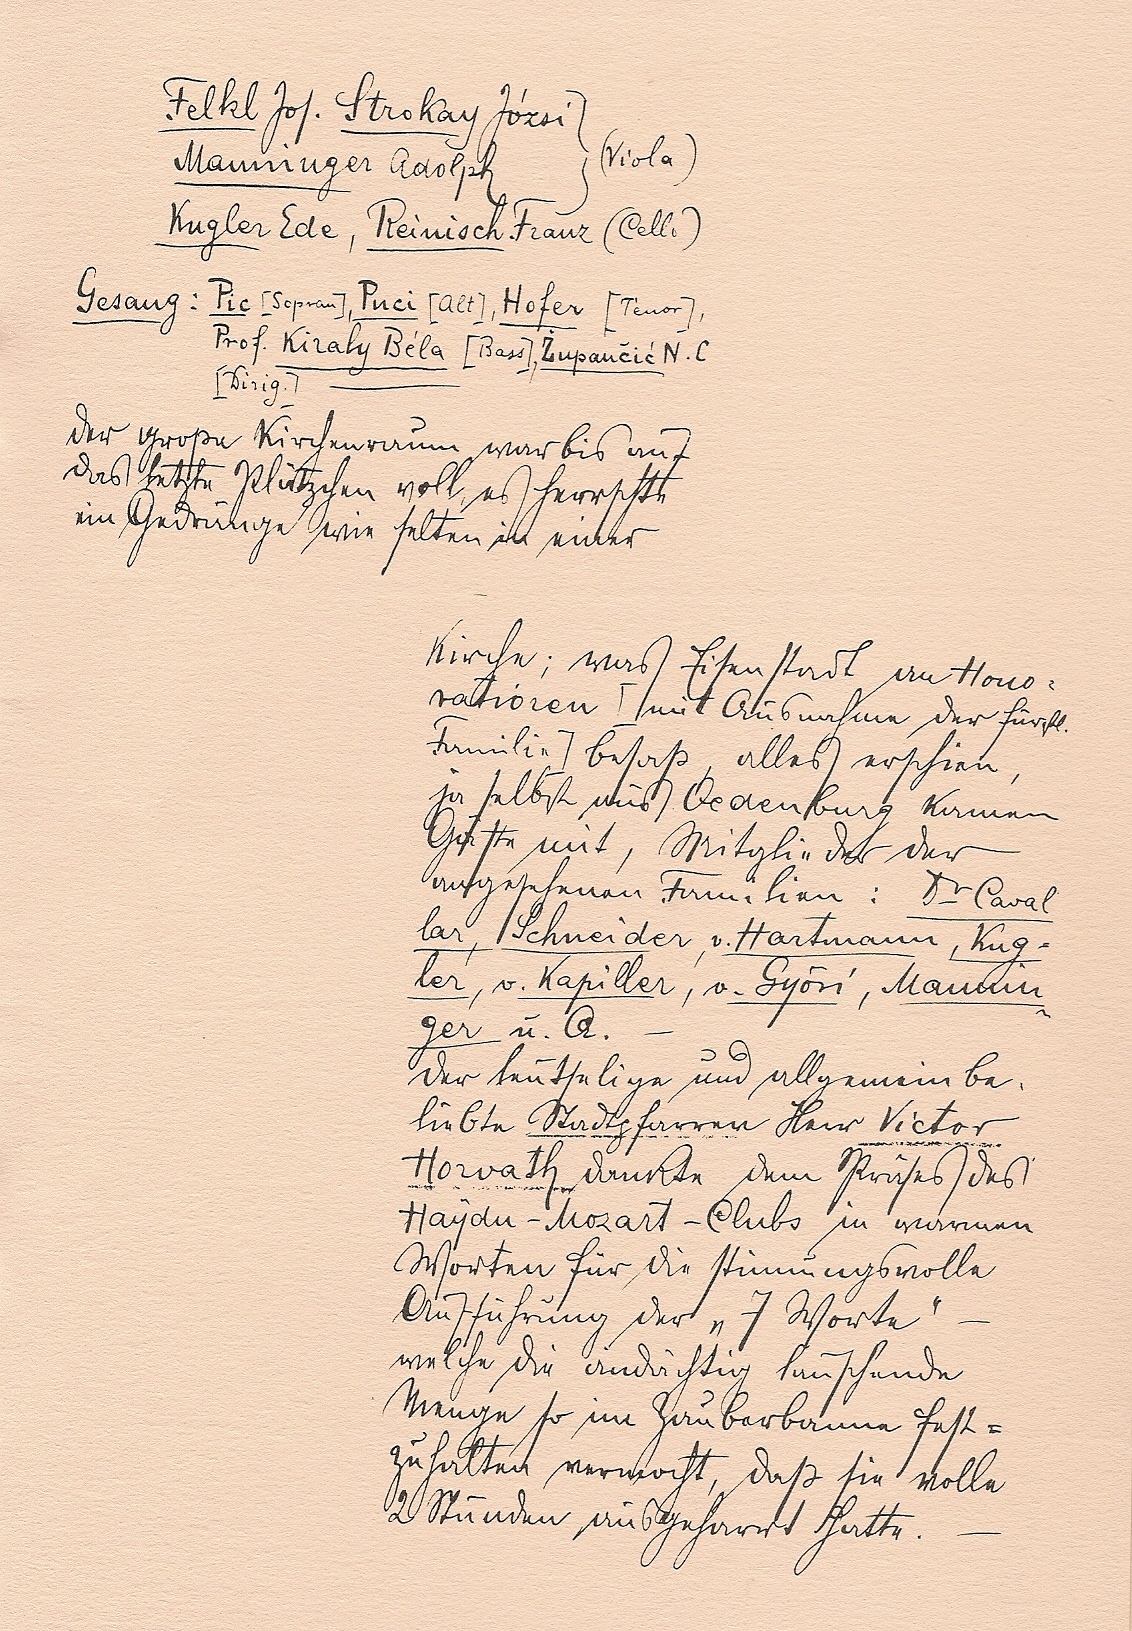 Felkl Jos. Strokay Józsi
Manninger Adolph } (Viola)
Kugler Ede, Reinisch Franz (Cello)
Gesang: Pic [Sopran], Puci [Alt], Hofer [Tenor],
Prof. Kiraly Béla [Bass], Župančić N. C
[Dirig.]
der große Kirchenraum war bis auf
das letzte Plätzchen voll, es herrschte
ein Gedränge wie selten in einer
Kirche; was Eisenstadt an Hono=
ratioren [mit Ausnahme der fürstl.
Familie] besaß, alles erschien,
ja selbst aus Oedenburg kamen
Gäste mit, Mitglieder der
angesehenen Familien: Dr Caval
lar, Schneider, v. Hartmann, Kug=
ler, v. Kapiller, v. Győri, Mannin
ger u. A. —
der leutselige und allgemein be-
liebte Stadtpfarrer Herr Victor
Horvath dankte dem Präses des
Haydn-Mozart-Clubs in warmen
Worten für die stimmungsvolle
Aufführung der „7 Worte" —
welche die andächtig lauschende
Menge so im Zauberbanne fest=
zuhalten vermocht, daß sie volle
2 Stunden ausgeharrt hatte. —